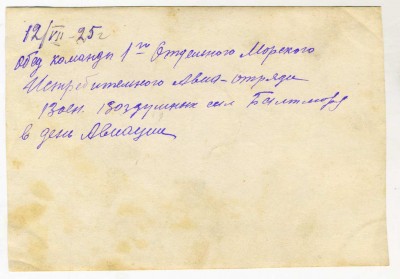 12/VII-25г
Обед команды 1го Отдельного Морского
Истребительного Авиа-отряда
Воен. воздушных сил Балтморя
в день Авиации